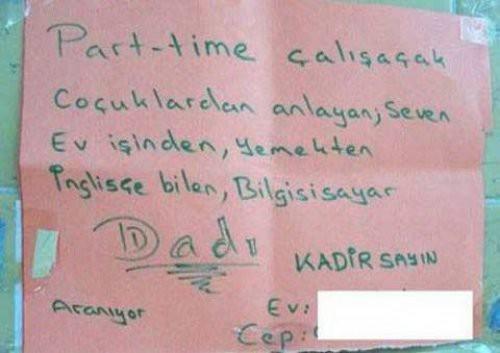 Part-time çalışaçak
Coçuklardan anlayan, Seven
Ev işinden, yemekten
İnglisçe bilen, Bilgisisayar
Dadı
KADİR SAYIN
Aranıyor
Ev:
Cep: